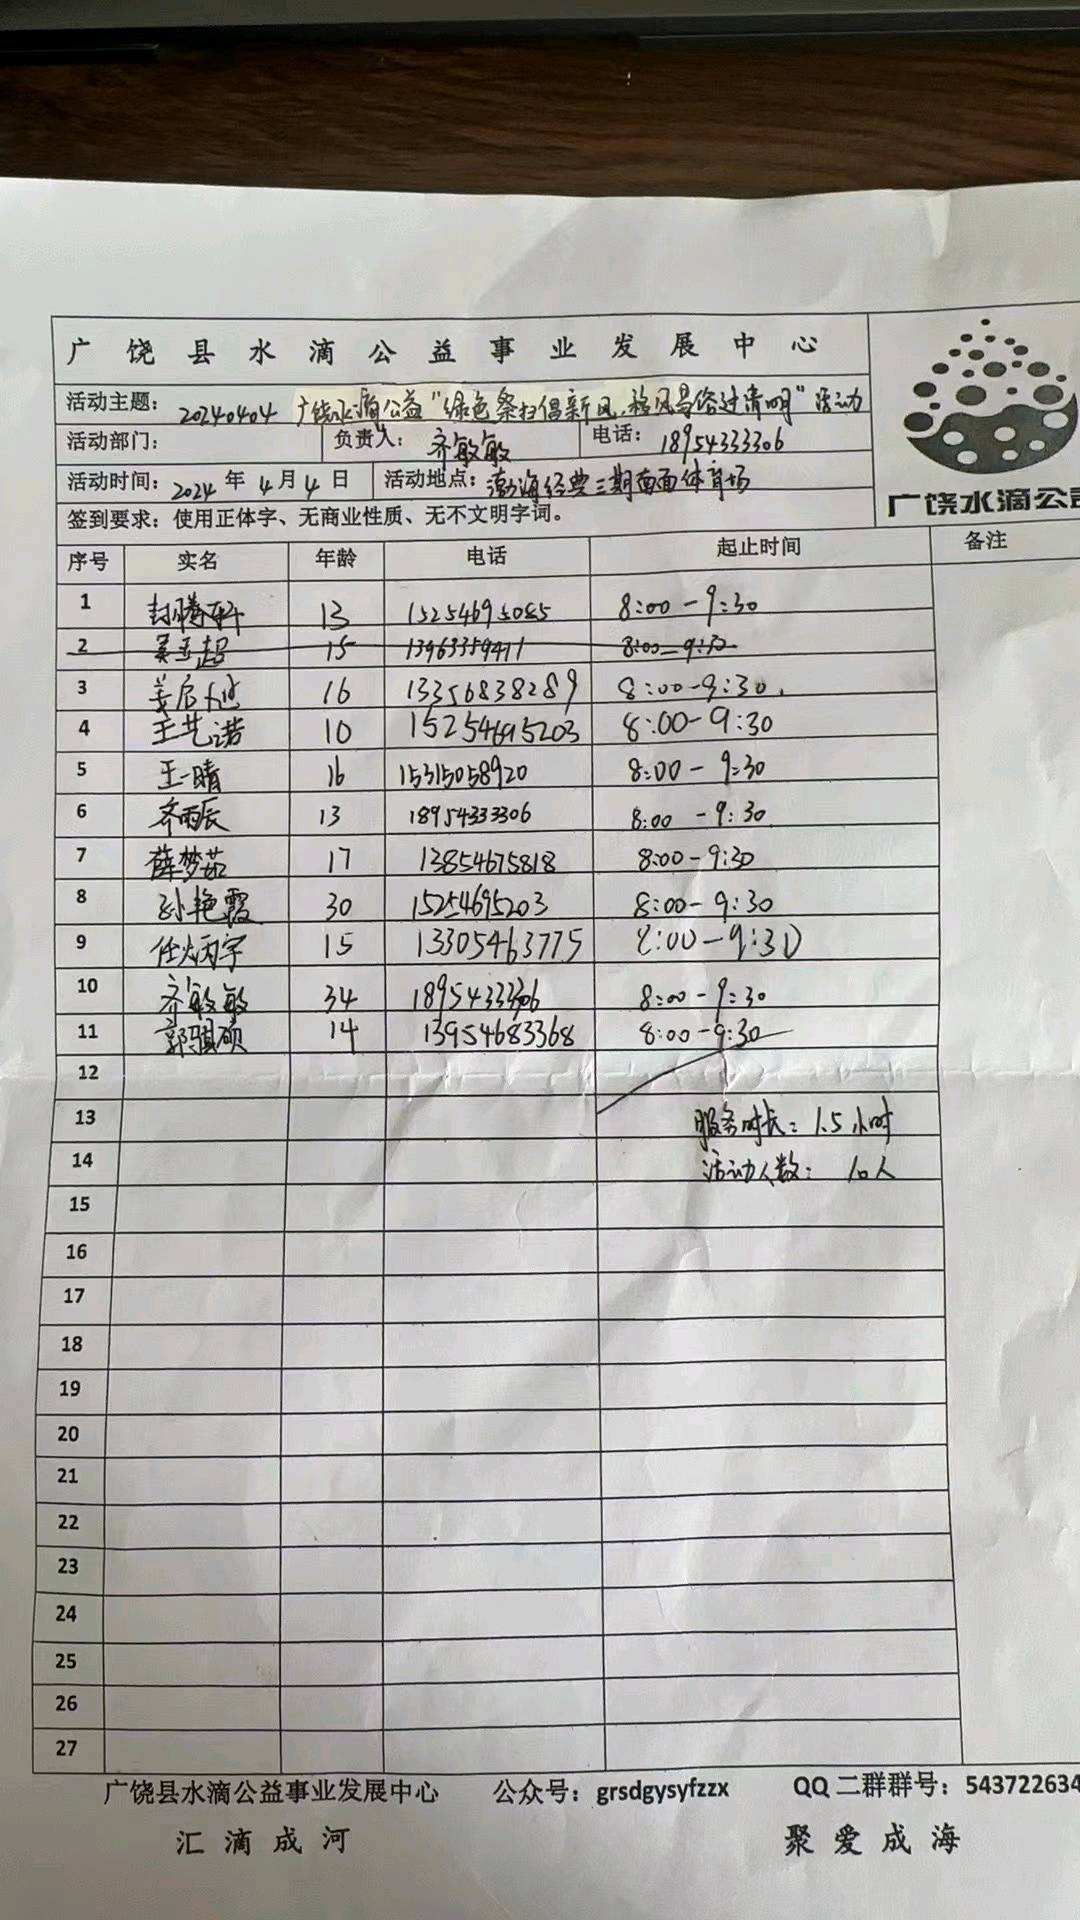 广饶县水滴公益事业发展中心
活动主题： 20240404 广饶水滴公益"绿色祭扫倡新风，移风易俗过清明"活动
活动部门： 负责人： 齐敏敏 电话： 18954333306
活动时间： 2024 年 4 月 4 日 活动地点： 渤海经典三期南面体育场
广饶水滴公
签到要求：使用正体字、无商业性质、无不文明字词。
序号 实名 年龄 电话 起止时间 备注
1 封腾轩 13 15254695085 8:00-9:30
2 15 13963359411 8:00-9:30
3 姜启 16 13356838289 8:00-9:30.
4 王艺诺 10 15254695203 8:00-9:30
5 王一晴 16 15315058920 8:00-9:30
6 齐雨辰 13 18954333306 8:00-9:30
7 薛梦茹 17 13854675818 8:00-9:30
8 孙艳霞 30 15254695203 8:00-9:30
9 任炳宇 15 13305463775 8:00-9:30
10 齐敏敏 34 18954333306 8:00-9:30
11 郭骐硕 14 13954683368 8:00-9:30
12
13 服务时长：1.5小时
14 活动人数：10人
15
16
17
18
19
20
21
22
23
24
25
26
27
广饶县水滴公益事业发展中心 公众号：grsdgysyfzzx QQ 二群群号：543722634
汇滴成河 聚爱成海